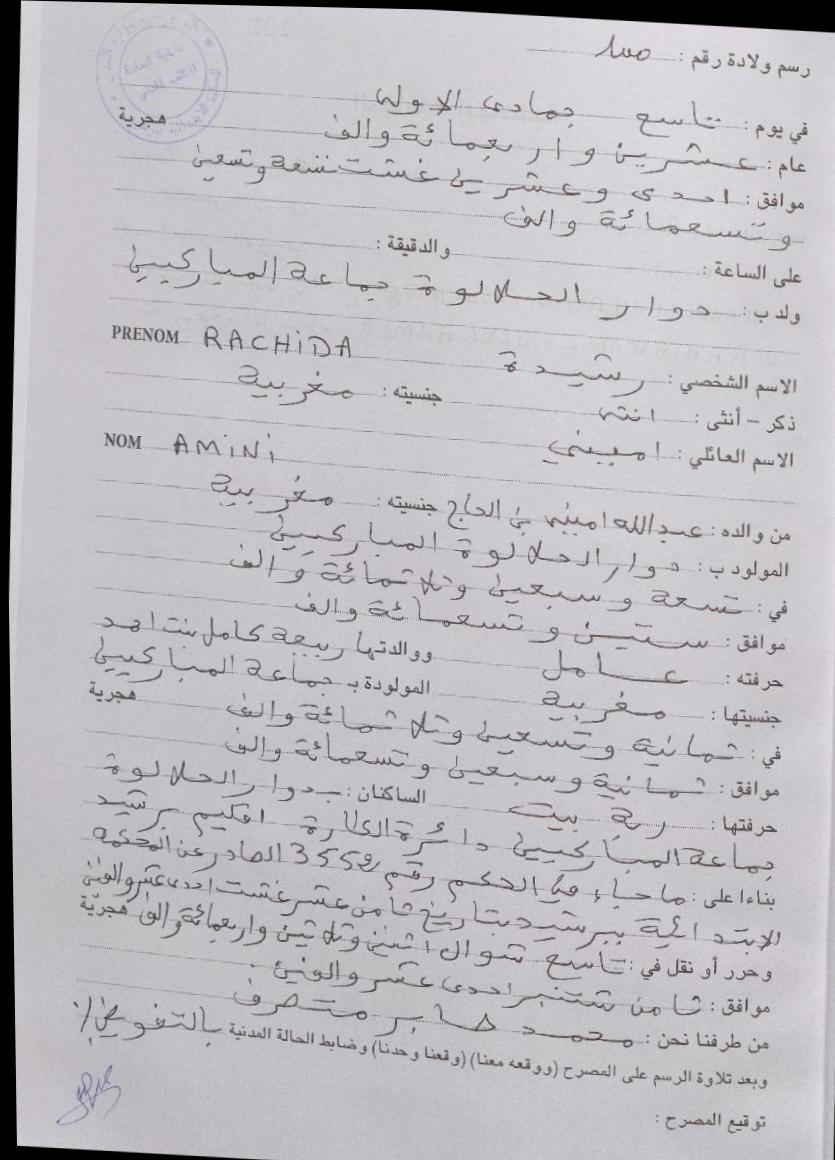 رسم ولادة رقم :
في يوم : تاسع جمادى الاولى
عام : عشرين و اربعمائة والف هجرية
موافق : احدى وعشرين غشت تسعة وتسعين
وتسعمائة والف
على الساعة : والدقيقة :
ولد ب : دوار الحلالوة جماعة المباركيين
الاسم الشخصي : رشيدة PRENOM RACHiDA
ذكر – أنثى : انثى جنسيته : مغربية
الاسم العائلي : اميني NOM AMiNi
من والده : عبدالله اميني بن الحاج جنسيته : مغربية
المولود ب : دوار الحلالوة المباركيين
في : تسعة وسبعين وتلاتمائة والف
موافق : ستين وتسعمائة والف
حرفته : عامل ووالدتها ربيعة كامل بنت احمد
جنسيتها : مغربية المولودة ب جماعة المباركيين
في : ثمانية وتسعين وتلاثمائة والف هجرية
موافق : ثمانية وسبعين وتسعمائة والف
حرفتها : ربة بيت الساكنان : بدوار الحلالوة
جماعة المباركيين دائرة الكارة اقليم برشيد
بناءا على : ماجاء في الحكم رقم الصادر عن المحكمة
الابتدائية ببرشيد بتاريخ ثامن عشر غشت احدى عشر والفين
وحرر أو نقل في : تاسع شوال اثنين وتلاتين واربعمائة والف هجرية
موافق : ثامن شتنبر احدى عشر والفين .
من طرفنا نحن : محمد صابر متصرف
وبعد تلاوة الرسم على المصرح (ووقعه معنا) (وقعنا وحدنا) وضابط الحالة المدنية بالتفويض ./.
توقيع المصرح :